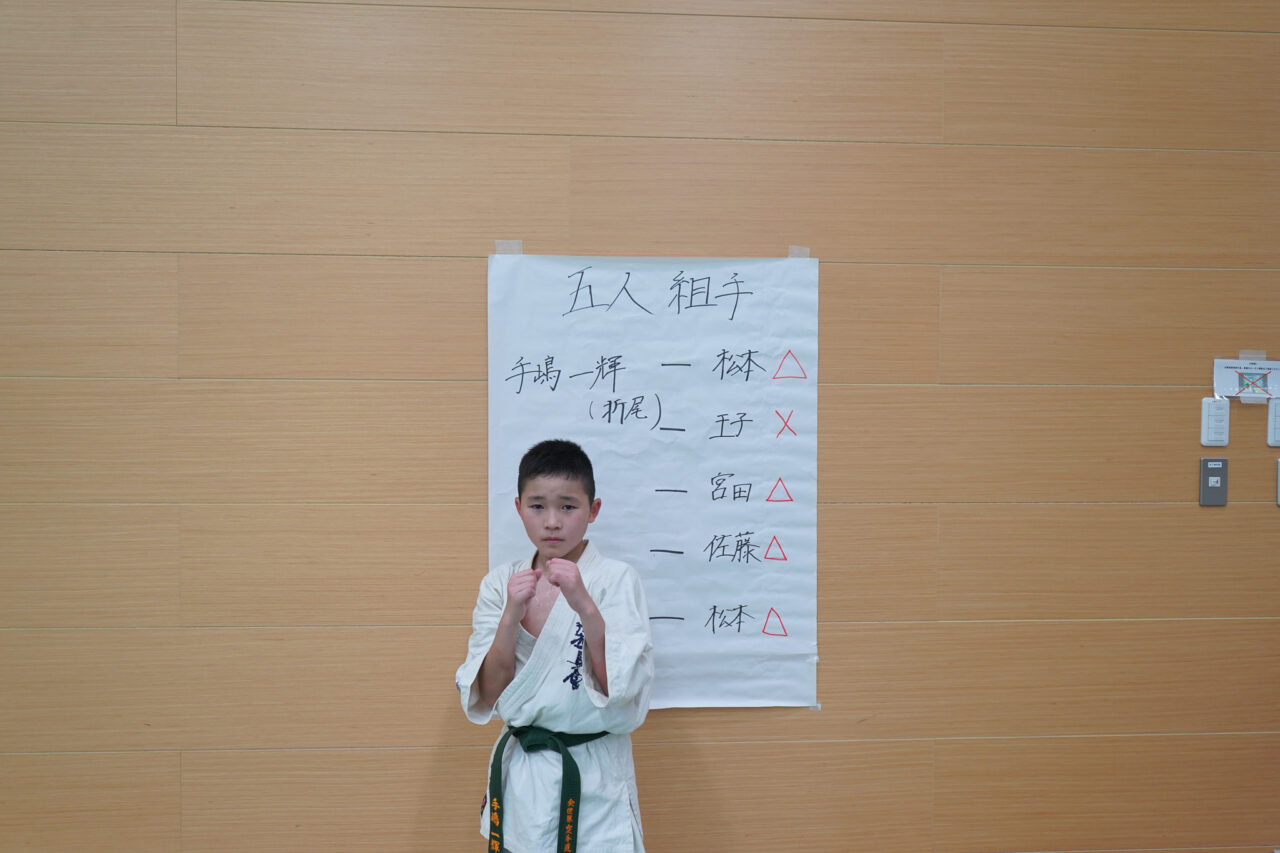 五人 組手
手嶋 一輝 ー 松本 △
(折尾) ー 王子 ×
ー 宮田 △
ー 佐藤 △
ー 松本 △
手嶋一輝